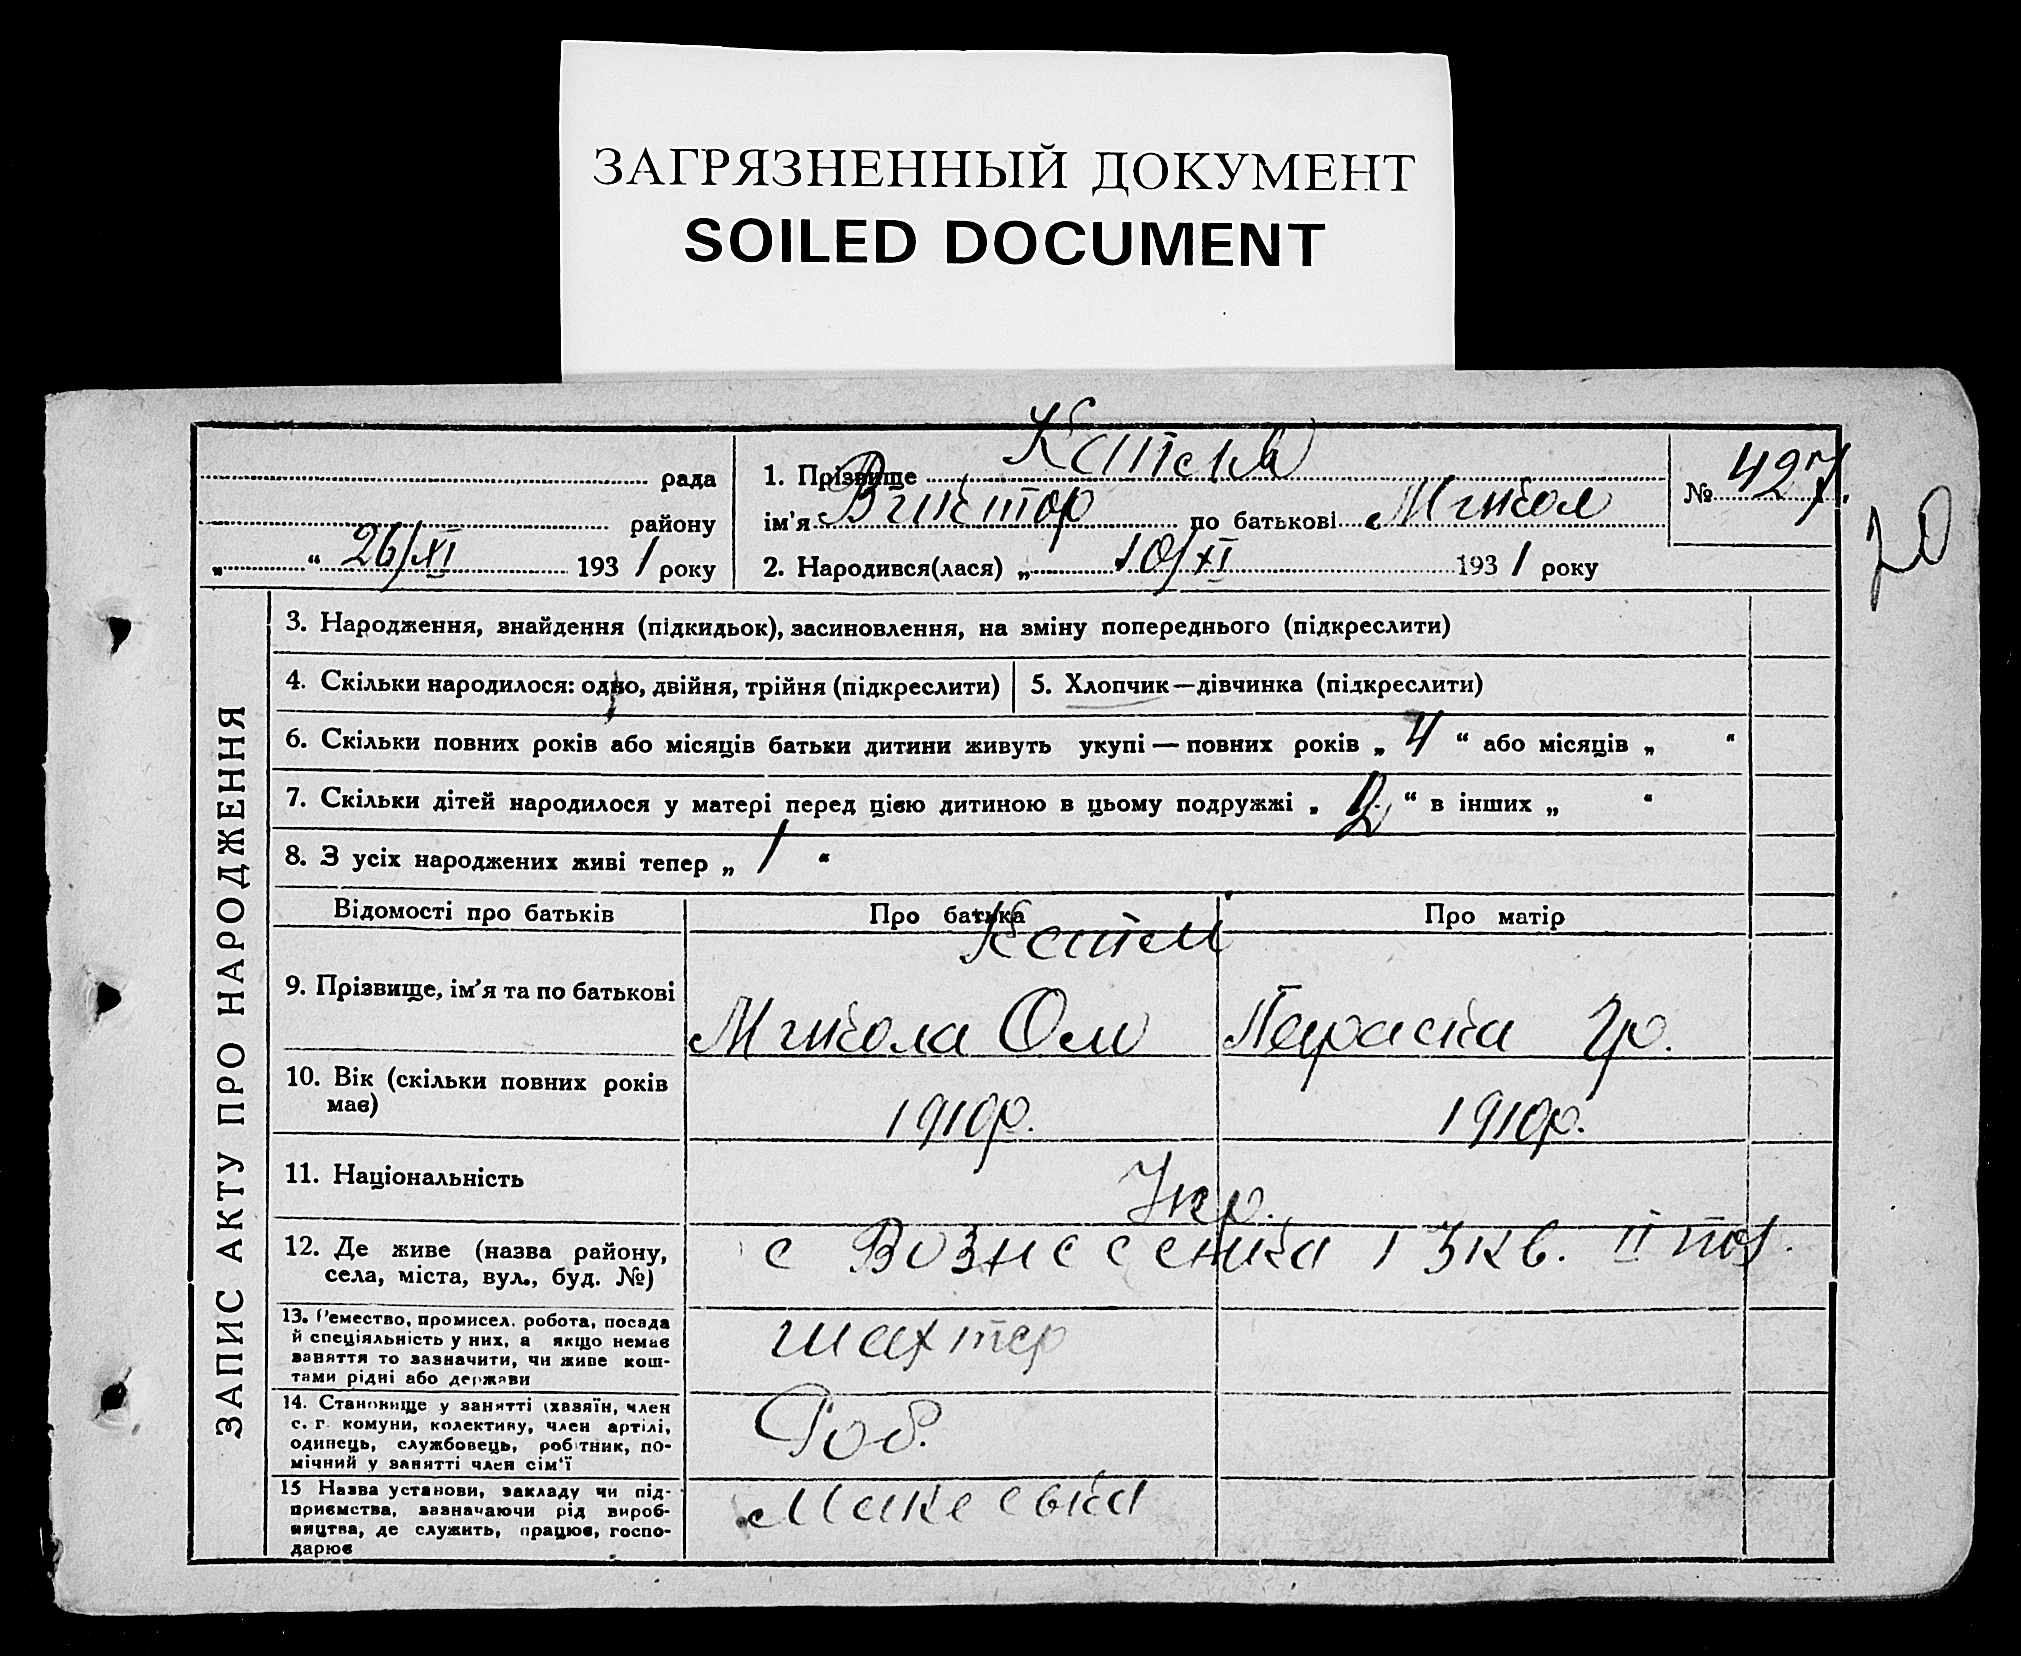 ЗАГРЯЗНЕННЫЙ ДОКУМЕНТ
SOILED DOCUMENT
рада
району
„ “ 26/XI 1931 року
1. Прізвище
ім'я Виктор по батькові Микол
2. Народився(лася) „ 10/XI 1931 року
№ 427.
20
ЗАПИС АКТУ ПРО НАРОДЖЕННЯ
3. Народження, знайдення (підкидьок), засиновлення, на зміну попереднього (підкреслити)
4. Скільки народилося: одно, двійня, трійня (підкреслити)
5. Хлопчик—дівчинка (підкреслити)
6. Скільки повних років або місяців батьки дитини живуть укупі — повних років „ 4 “ або місяців „ “
7. Скільки дітей народилося у матері перед цією дитиною в цьому подружжі „ 2 “ в інших „ “
8. З усіх народжених живі тепер „ 1 “
Відомості про батьків
Про батька
Про матір
9. Прізвище, ім'я та по батькові
Микола Ом
Параска Гр.
10. Вік (скільки повних років
має)
1910р.
1910р.
11. Національність
Укр.
12. Де живе (назва району,
села, міста, вул., буд. №)
с Вознесенка 13 кв. II пов.
13. Ремество, промисел, робота, посада
й спеціяльність у них, а якщо немає
заняття то зазначити, чи живе кош-
тами рідні або держави
шахтер
14. Становище у занятті (хазяїн, член
с. г. комуни, колективу, член артілі,
одинець, службовець, робітник, по-
мічний у занятті член сім'ї
Роб.
15 Назва установи, закладу чи під-
приємства, зазначаючи рід вироб-
ництва, де служить, працює, госпо-
дарює
Макеевка